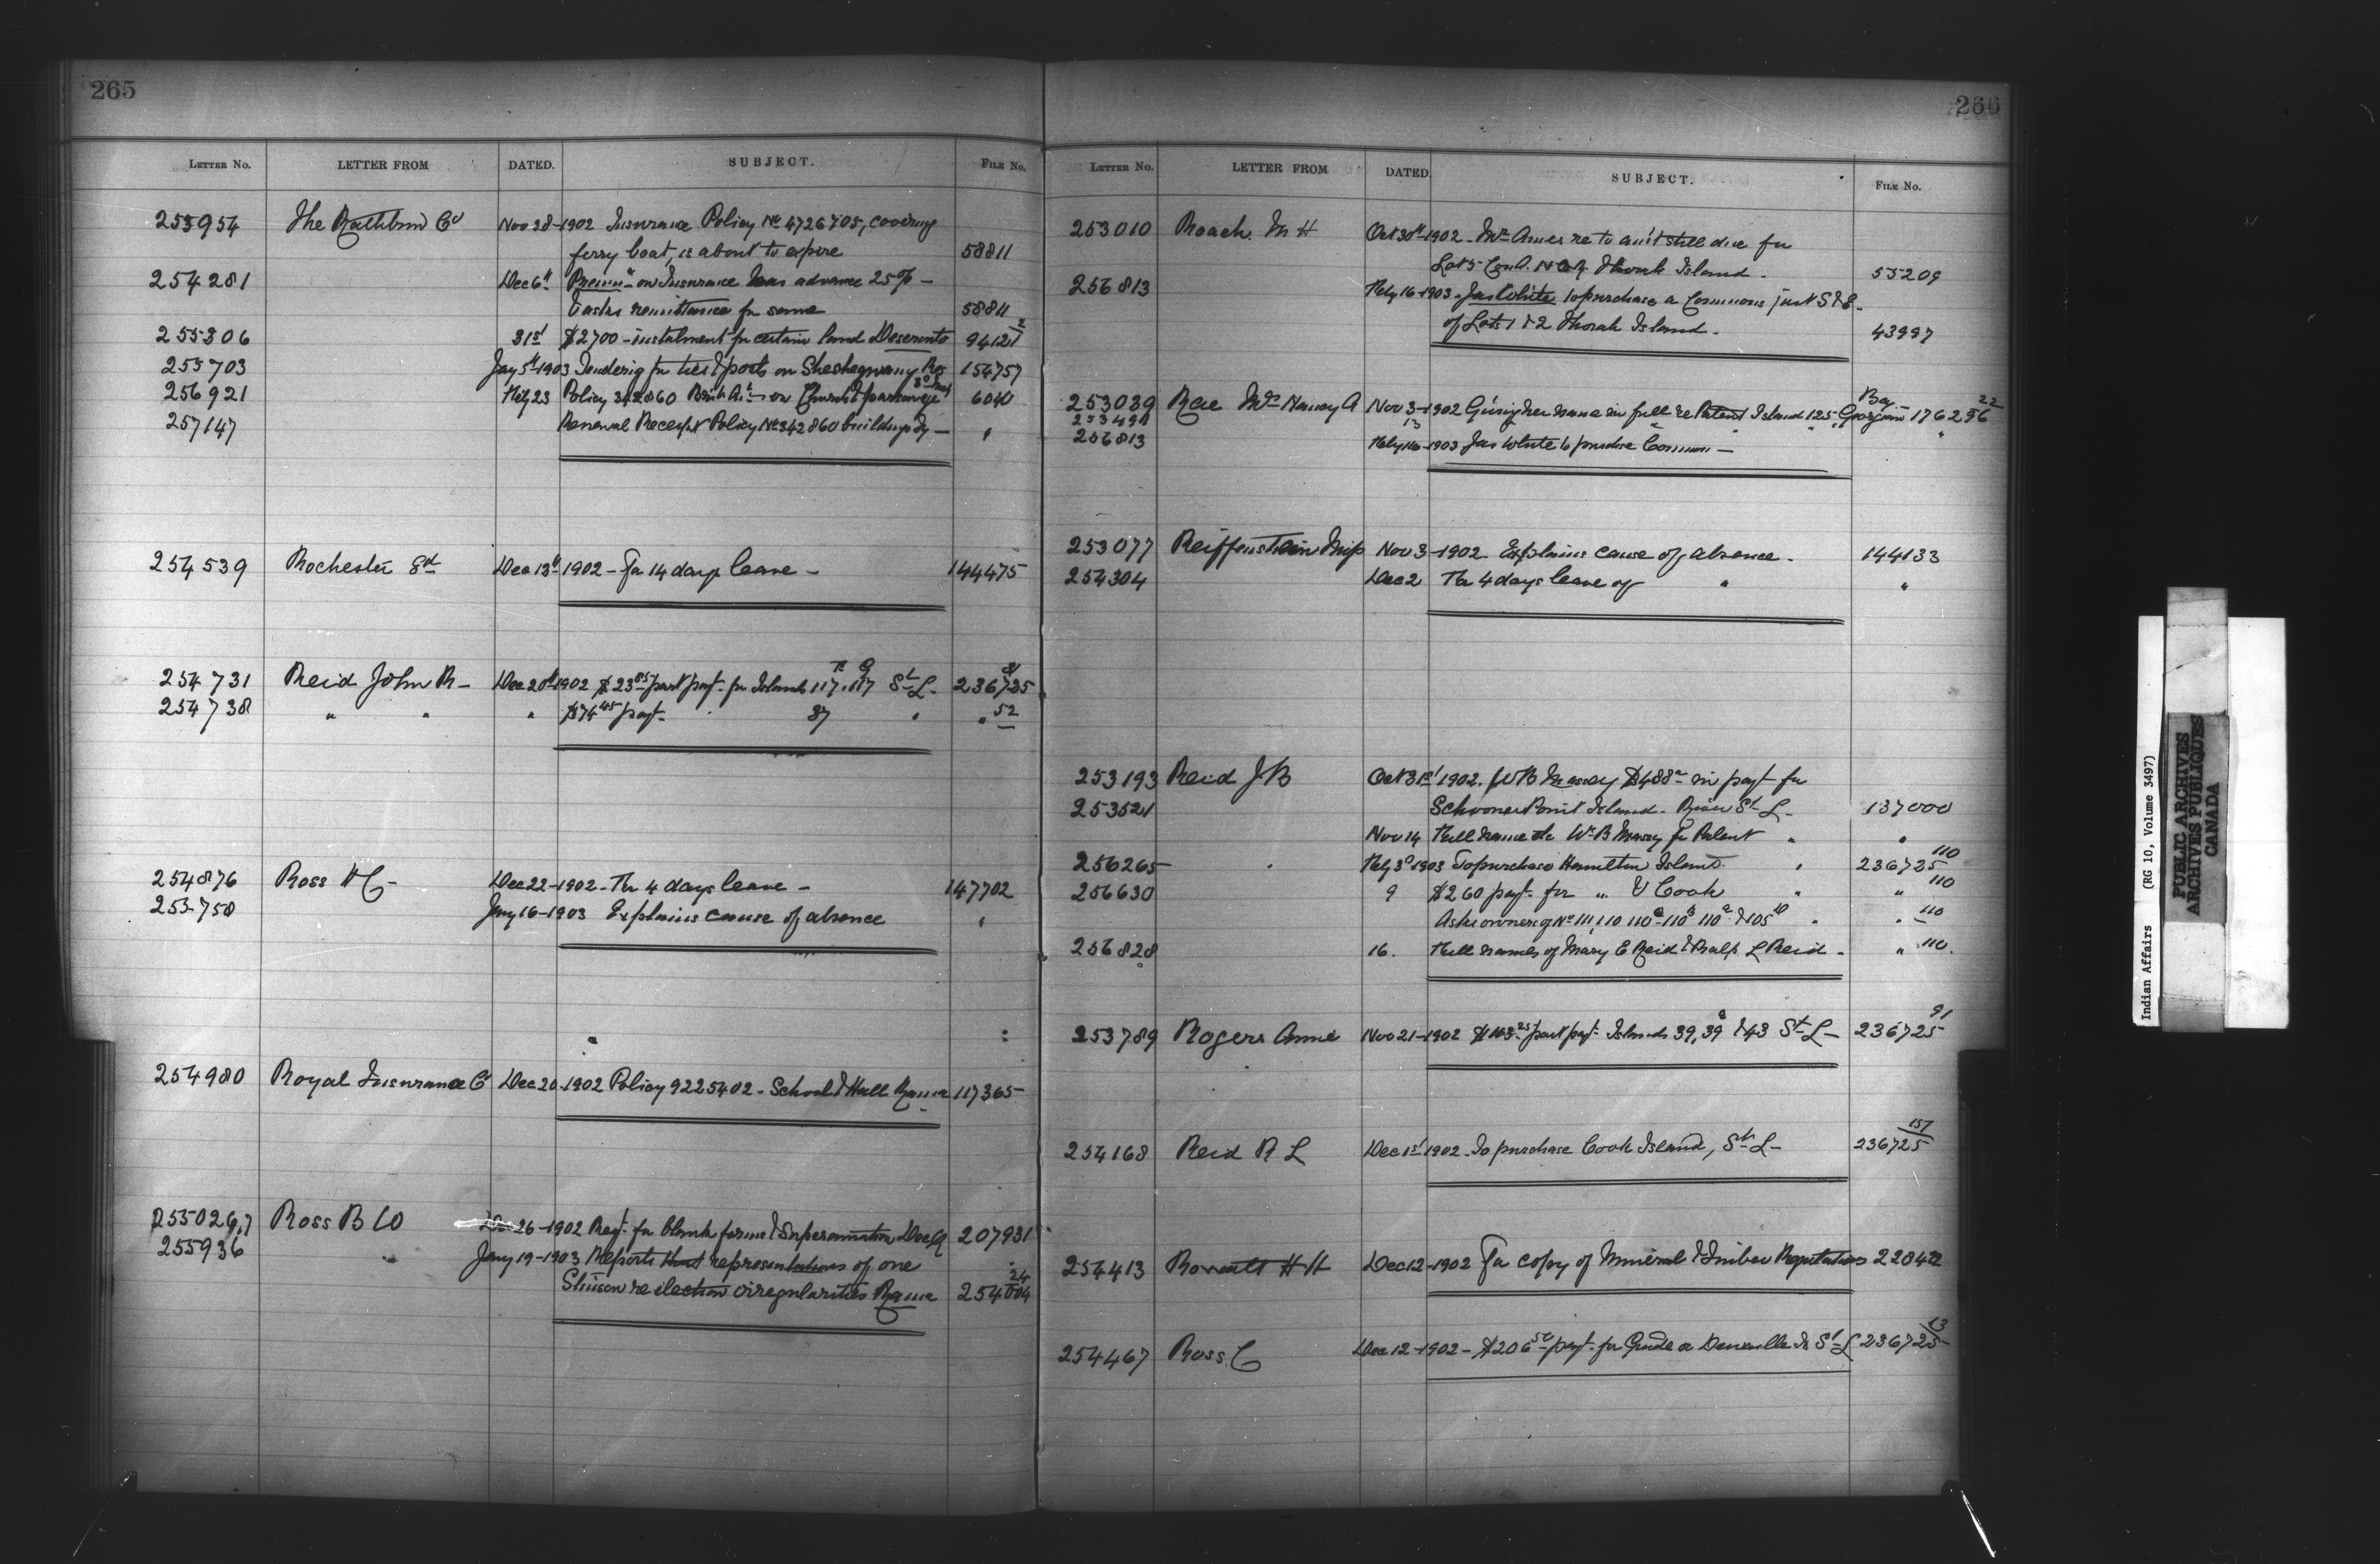 265
LETTER NO. LETTER FROM DATED. SUBJECT. FILE NO.
253954 The Rathbun Co Nov 28-1902 Insurance Policy No 4726705, covering
ferry boat, is about to expire 58811
254281 Dec 6th Premm on Insurance has advance 25% -
remittance for same 58811
255306 31st $2700 - instalment for certain land Deseronto 94121 2
255703 Jany 5th 1903 Tendering for ties & posts on Sheshegwaning Res 154757
256921 Feby 23 Policy 342860 on Church & parsonage 6040
257147 Renewal Receipt Policy No 342860 buildings - "
254539 Rochester Ed Dec 13th 1902 - For 14 days leave - 144475
254731 Reid John R - Dec 20th 1902 $23.85 part payt. for Islands 117, 117 St L. 236725
254738 " " " $74.45 payt. " 87 " " 52
254876 Ross H C - Dec 22-1902 - For 4 days leave - 147702
253758 Jany 16-1903 Explains cause of absence "
254980 Royal Insurance Co Dec 20-1902 Policy 9225402 - School & Hall Rama 117365
255026,7 Ross B W Dec 26-1902 Reqt. for blank forms & Superannuation 207931
255936 " Jany 19-1903 Reports that representations of one
Stinson re election irregularities Rama 254004 24
266
LETTER NO. LETTER FROM DATED. SUBJECT. FILE NO.
253010 Roach. M H Oct 30th 1902 - Mr Ames re to am't still due for
Lot 5 Con A. Thorah Island. 55209
256813 Feby 16-1903 - Jas White to purchase a Commons just S & E.
of Lots 1 & 2 Thorah Island. 43997
253039 Rae Mrs Nancy A Nov 3-1902 Giving her name in full re Patent Island 125 Georgian Bay 176296 22
253491 13 " " " "
256813 Feby 16-1903 Jas White to purchase Common -
253077 Reiffenstein Miss Nov 3-1902 Explains cause of absence. 144133
254304 Dec 2 For 4 days leave of " "
253193 Reid J B Oct 31st 1902. W B Massey $488 in payt for
253521 Schooner Point Island - River St L - 137000
Nov 14 Full name etc W. B Massey for Patent " "
256265 " Feby 3d 1903 To purchase Hamilton Island " 236725 110
256630 9 $260 payt. for " & Cook " " 110
Asks owners of No 111, 110 110 - 110 110 & 105 " " 110
256828 16. Full names of Mary E Reid & Ralp L Reid - " 110.
253789 Rogers Anne Nov 21-1902 part payt. Islands 39, 39 & 43 St L - 236725 91
254168 Reid R L Dec 1st 1902 - To purchase Cook Island, St L - 236725 157
254413 H H Dec 12-1902 For copy of Mineral & Timber Regulations
254467 Ross. C Dec 12-1902 - $206 payt. for St L 236725 13
Indian Affairs (RG 10, Volume 3497)
PUBLIC ARCHIVES
ARCHIVES PUBLIQUES
CANADA